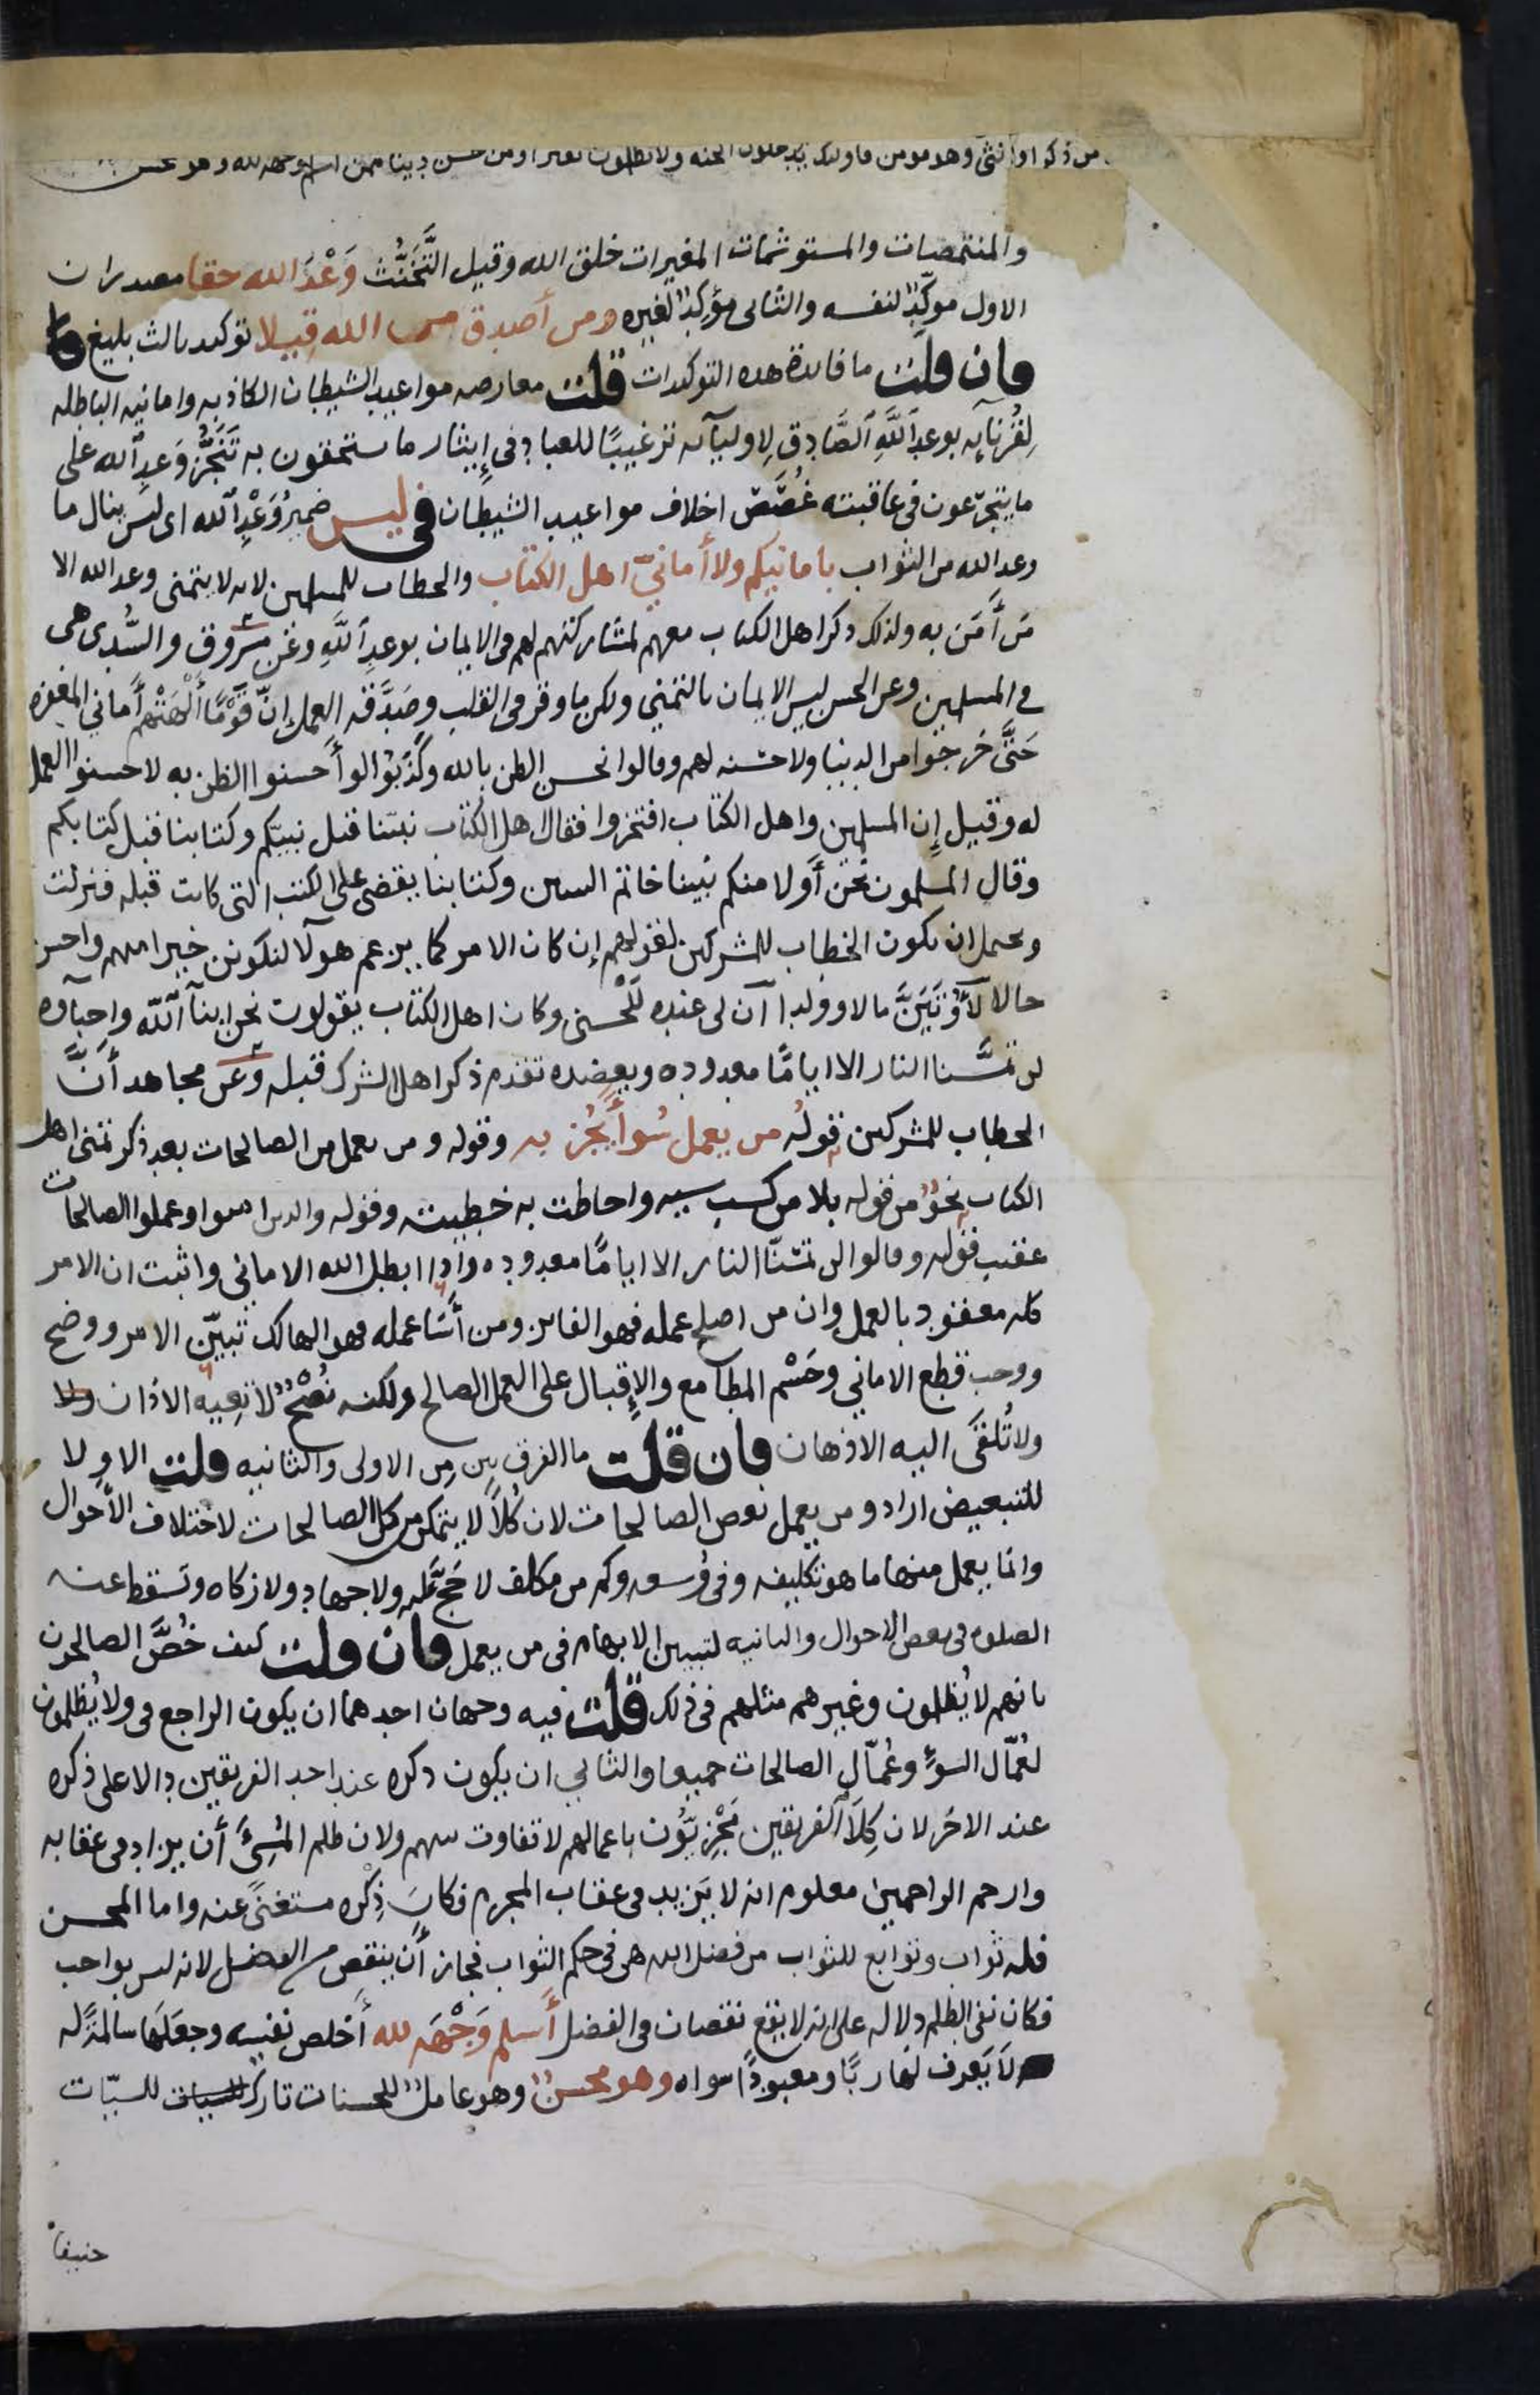 من ذكر او انثى وهو مومن فاولئك يدخلون الجنه ولا يظلمون نقيرا ومن احسن دينا ممن اسلم وجهه لله وهو محسن
والمتنمصات والمستوشمات المغيرات خلق الله وقيل التَّخَنُّث وَعْدَ الله حقا مصدران
الاول موكِّدٌ لنفسه والثانى مؤكِدٌ لغيره ومن أصدق من الله قِيلا توكيد ثالث بليغ
فان قلت ما فائدة هذه التوكيدات قلت معارضه مواعيد الشيطان الكاذبه وامانيه الباطله
لِقُرَنآيه بوعد اَللَّهِ اَلصَّادِق لِاوليآئه ترغيبًا للعباد فى إِيثار ما ستحقون به تَنَجُّزَ وَعدِ اَلله على
ما يتجرّعون فى عاقبته غُصَصَ اخلاف مواعيد الشيطان فى ليس ضميرُ وَعْدِ اَلله اى ليس ينال ما
وعد الله من الثواب بامانيكم ولا أمانيّ اهل الكتاب والخطاب للمسلمين لانه لا يتمنى وعد الله الا
مَن أَمَنَ به ولذلك ذكر اهل الكتاب معهم لمشاركتهم لهم فى الايمان بوعدِ اَللَّهِ وعَن مسروق والسُّدى هى
فى المسلمين وعن الحسن ليس الايمان بالتمنِي ولكن ما وقر فى القلب وصَدَّقه العمل إنّ قَوْمًا أَلْهَتْهم أماني المغفره
حَتَّى خرجوا من الدنيا ولا حسنه لهم وقالوا نحسن الظن بالله وكَذَبوْا لو أَحسنوا الظن به لاحسنوا العمل
له وقيل إِن المسلمين واهل الكتاب افتخروا فقال اهل الكتاب نبيّنا قبل نبيّكم وكتابنا قبل كتابكم
وقال المسلمون نحْن أَولا منكم نبينا خاتم النبيين وكتابنا يقضى على الكتب التى كانت قبله فنزلت
ويحتمل ان يكون الخطاب للمشركين لقولهم إن كان الامر كما يزعم هولآ لنكونن خيرا منهم واحسن
حالا لَأُوتَيَنَّ مالا وولدا آن لى عنده لَلْحسنى وكان اهل الكتاب يقولون نحن ابنآ اَللَّه واحبآوه
لن تمسَّنا النار الا ايامًا معدوده ويعضده تقدم ذكر اهل الشرك قبله وَعَن مجاهد أَنَّ
الخطاب للمشركين قولُه من يعمل سُوأً يُجْز به وقوله ومن يعمل من الصالحات بعد ذكر تمني اهل
الكتاب نحوٌ من قوله بلا من كسب سييه واحاطت به خطيته وقوله والذين امنوا وعملوا الصالحات
عقيب قوله وقالوا لن تمسّنا النار الا ايامًا معدوده واذا ابطل الله الاماني واثبت ان الامر
كله معقود بالعمل وان من اصلح عمله فهو الفائز ومن أَسَا عمله فهو الهالك تبيّن الامر ووضح
ووجب قطع الاماني وحَسْم المطامع والإِقبال على العمل الصالح ولكنه نُصْحٌ لا تعِيه الاذان
ولا تُلقَى اليه الاذهان فان قلت ما الفرق بين مِن الاولى والثانيه قلت الاولا
للتبعيض اراد ومن يعمل بعض الصالحات لان كُلاً لا يتمكن من كل الصالحات لاختلاف الأحوال
وانما يعمل منها ما هو تكليفه وفى وُسعه وكم من مكلف لا حَجّ عَلَيه ولا جهاد ولا زكاه وتَسقط عنه
الصلوه فى بعض الاحوال والثانيه لتبيين الابهام فى من يعمل فان قلت كيف خُصَّ الصالحون
بانهم لا يُظلمون وغيرهم مثلهم فى ذلك قلت فيه وجهان احدهما ان يكون الراجع فى ولا يُظلمون
لعُمّال السوءِ وعُمّال الصالحات جميعا والثاني ان يكون ذكره عند احد الفريقين دالا على ذكره
عند الاخَر لان كِلَا الفريقين مَجْزِيّون باعمالهم لا تفاوت بينهم ولان ظلم المُسِىءِ أن يزاد فى عقابه
وارحم الراحمين معلوم انه لا يَزيد فى عقاب المجرم فكان ذِكْره مستغنىً عنه واما المحسن
فله ثواب وتوابع للثواب من فضل الله هى فى حكم الثواب فجاز أَن ينقص من الفضل لانه ليس بواجب
فكان نفى الظلم دلاله على انه لا يقع نقصان فى الفضل أَسلم وَجْهَه لله أَخلص نفسه وجعَلها سالمة لله
لَا يَعرف لها ربًّا ومعبودًا سواه وهو محسنٌ وهو عاملٌ للحسنات تاركٌ للسيّات
حنيفا